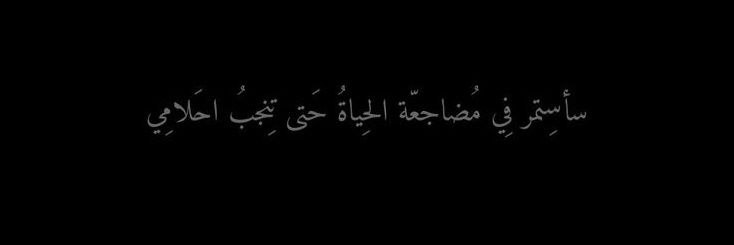 سأسِتمر فِي مُضاجعّة الحِياةُ حَتى تِنجبُ احَلامِي